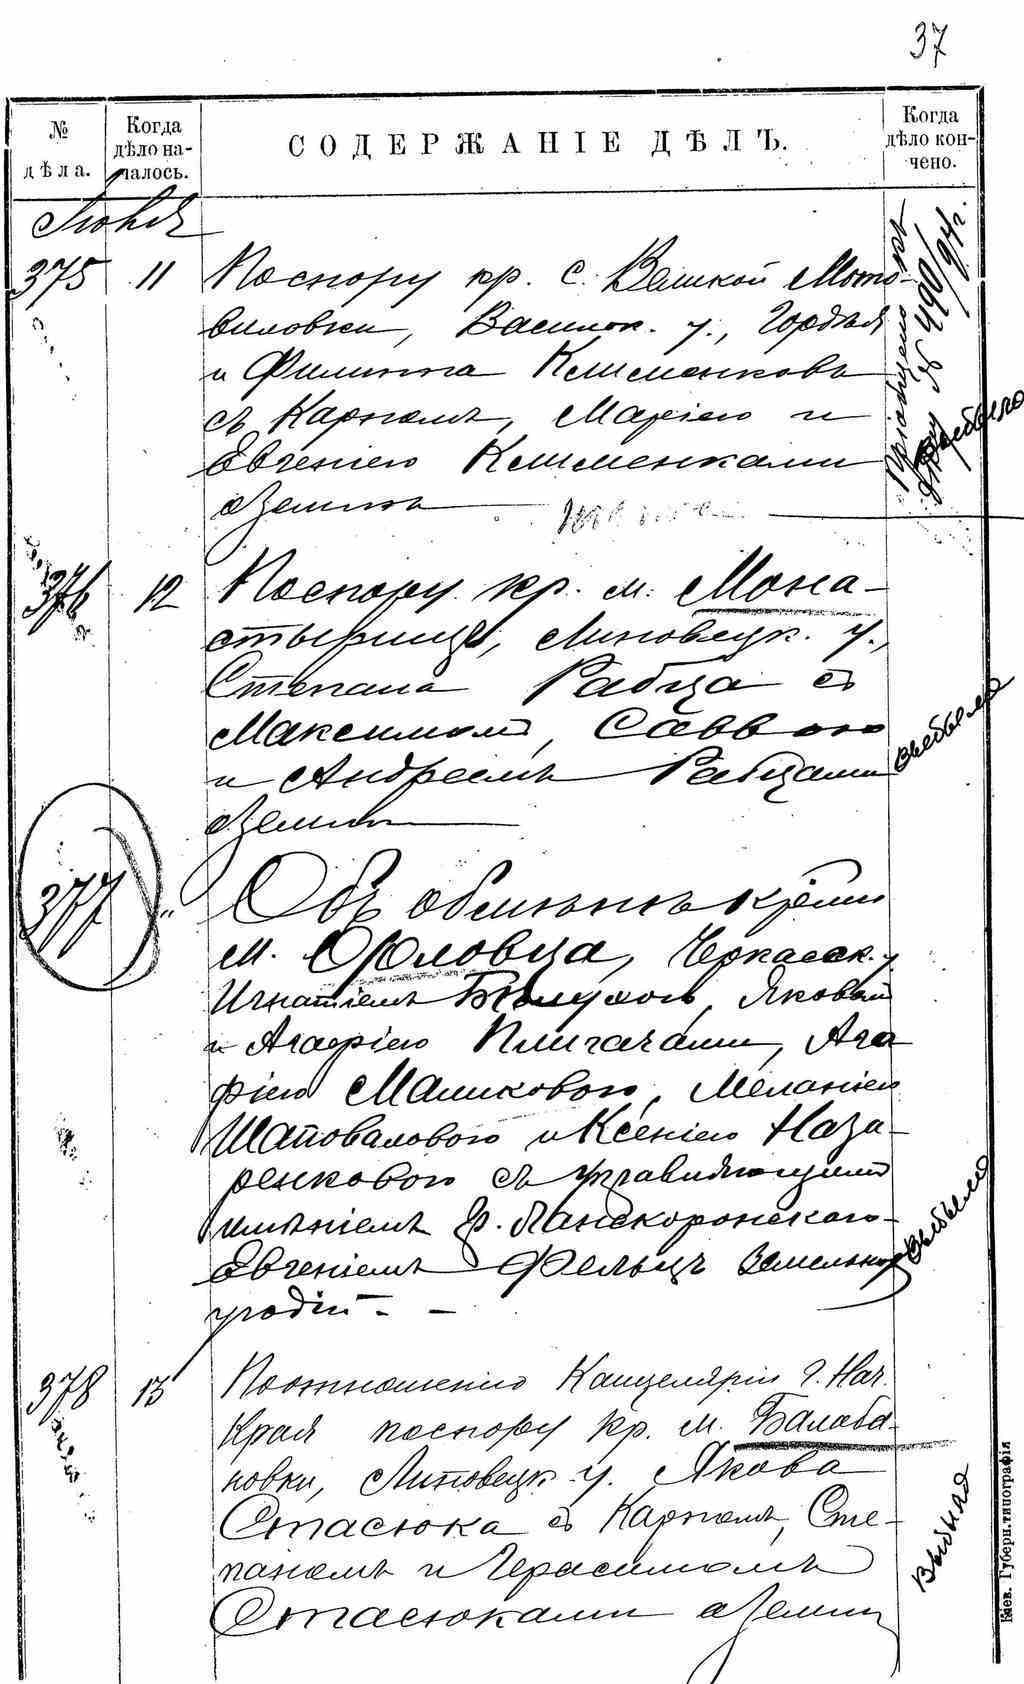 37
№ дѣла.
Когда дѣло на-чалось.
СОДЕРЖАНІЕ ДѢЛЪ.
Когда дѣло кон-чено.
375 11 По спору кр. с. Великой Мото-
виловки, Васильк. у., Гордѣя
и Филиппа Клименковъ
съ Карпомъ, Маріею и
Евгеніею Клименками
о землѣ
Пріобщено къ
дѣлу № 490/94 г.
Выбыло
376 12 По спору кр. м. Мона-
стырище, Липовецк. у.,
Степана Рабца съ
Максимомъ, Саввою
и Андреемъ Рабцами
о землѣ
выбыло
377 " Объ обмѣнѣ кр-ми
м. Орловца, Черкасск. у.
Игнатіемъ Яковомъ
и Агафіею Плигачами, Ага
фіею Маликовою, Меланіею
Шаповаловою и Ксеніею Наза-
ренковою съ управляющимъ
имѣніемъ гр. Лянскоронскаго
Евгеніемъ Фельцъ земельныхъ
угодій
выбыло
378 13 По отношенію Канцеляріи Г. Нач.
Края по спору кр. м. Балаба-
новки, Липовецк. у. Якова
Стасюка съ Карпомъ, Сте-
паномъ и Герасимомъ
Стасюками о земли
Кіев. Губерн. типографія